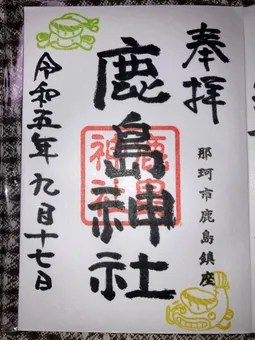 奉拝
那珂市鹿島鎮座
鹿島神社
鹿島神社
令和五年九月十七日